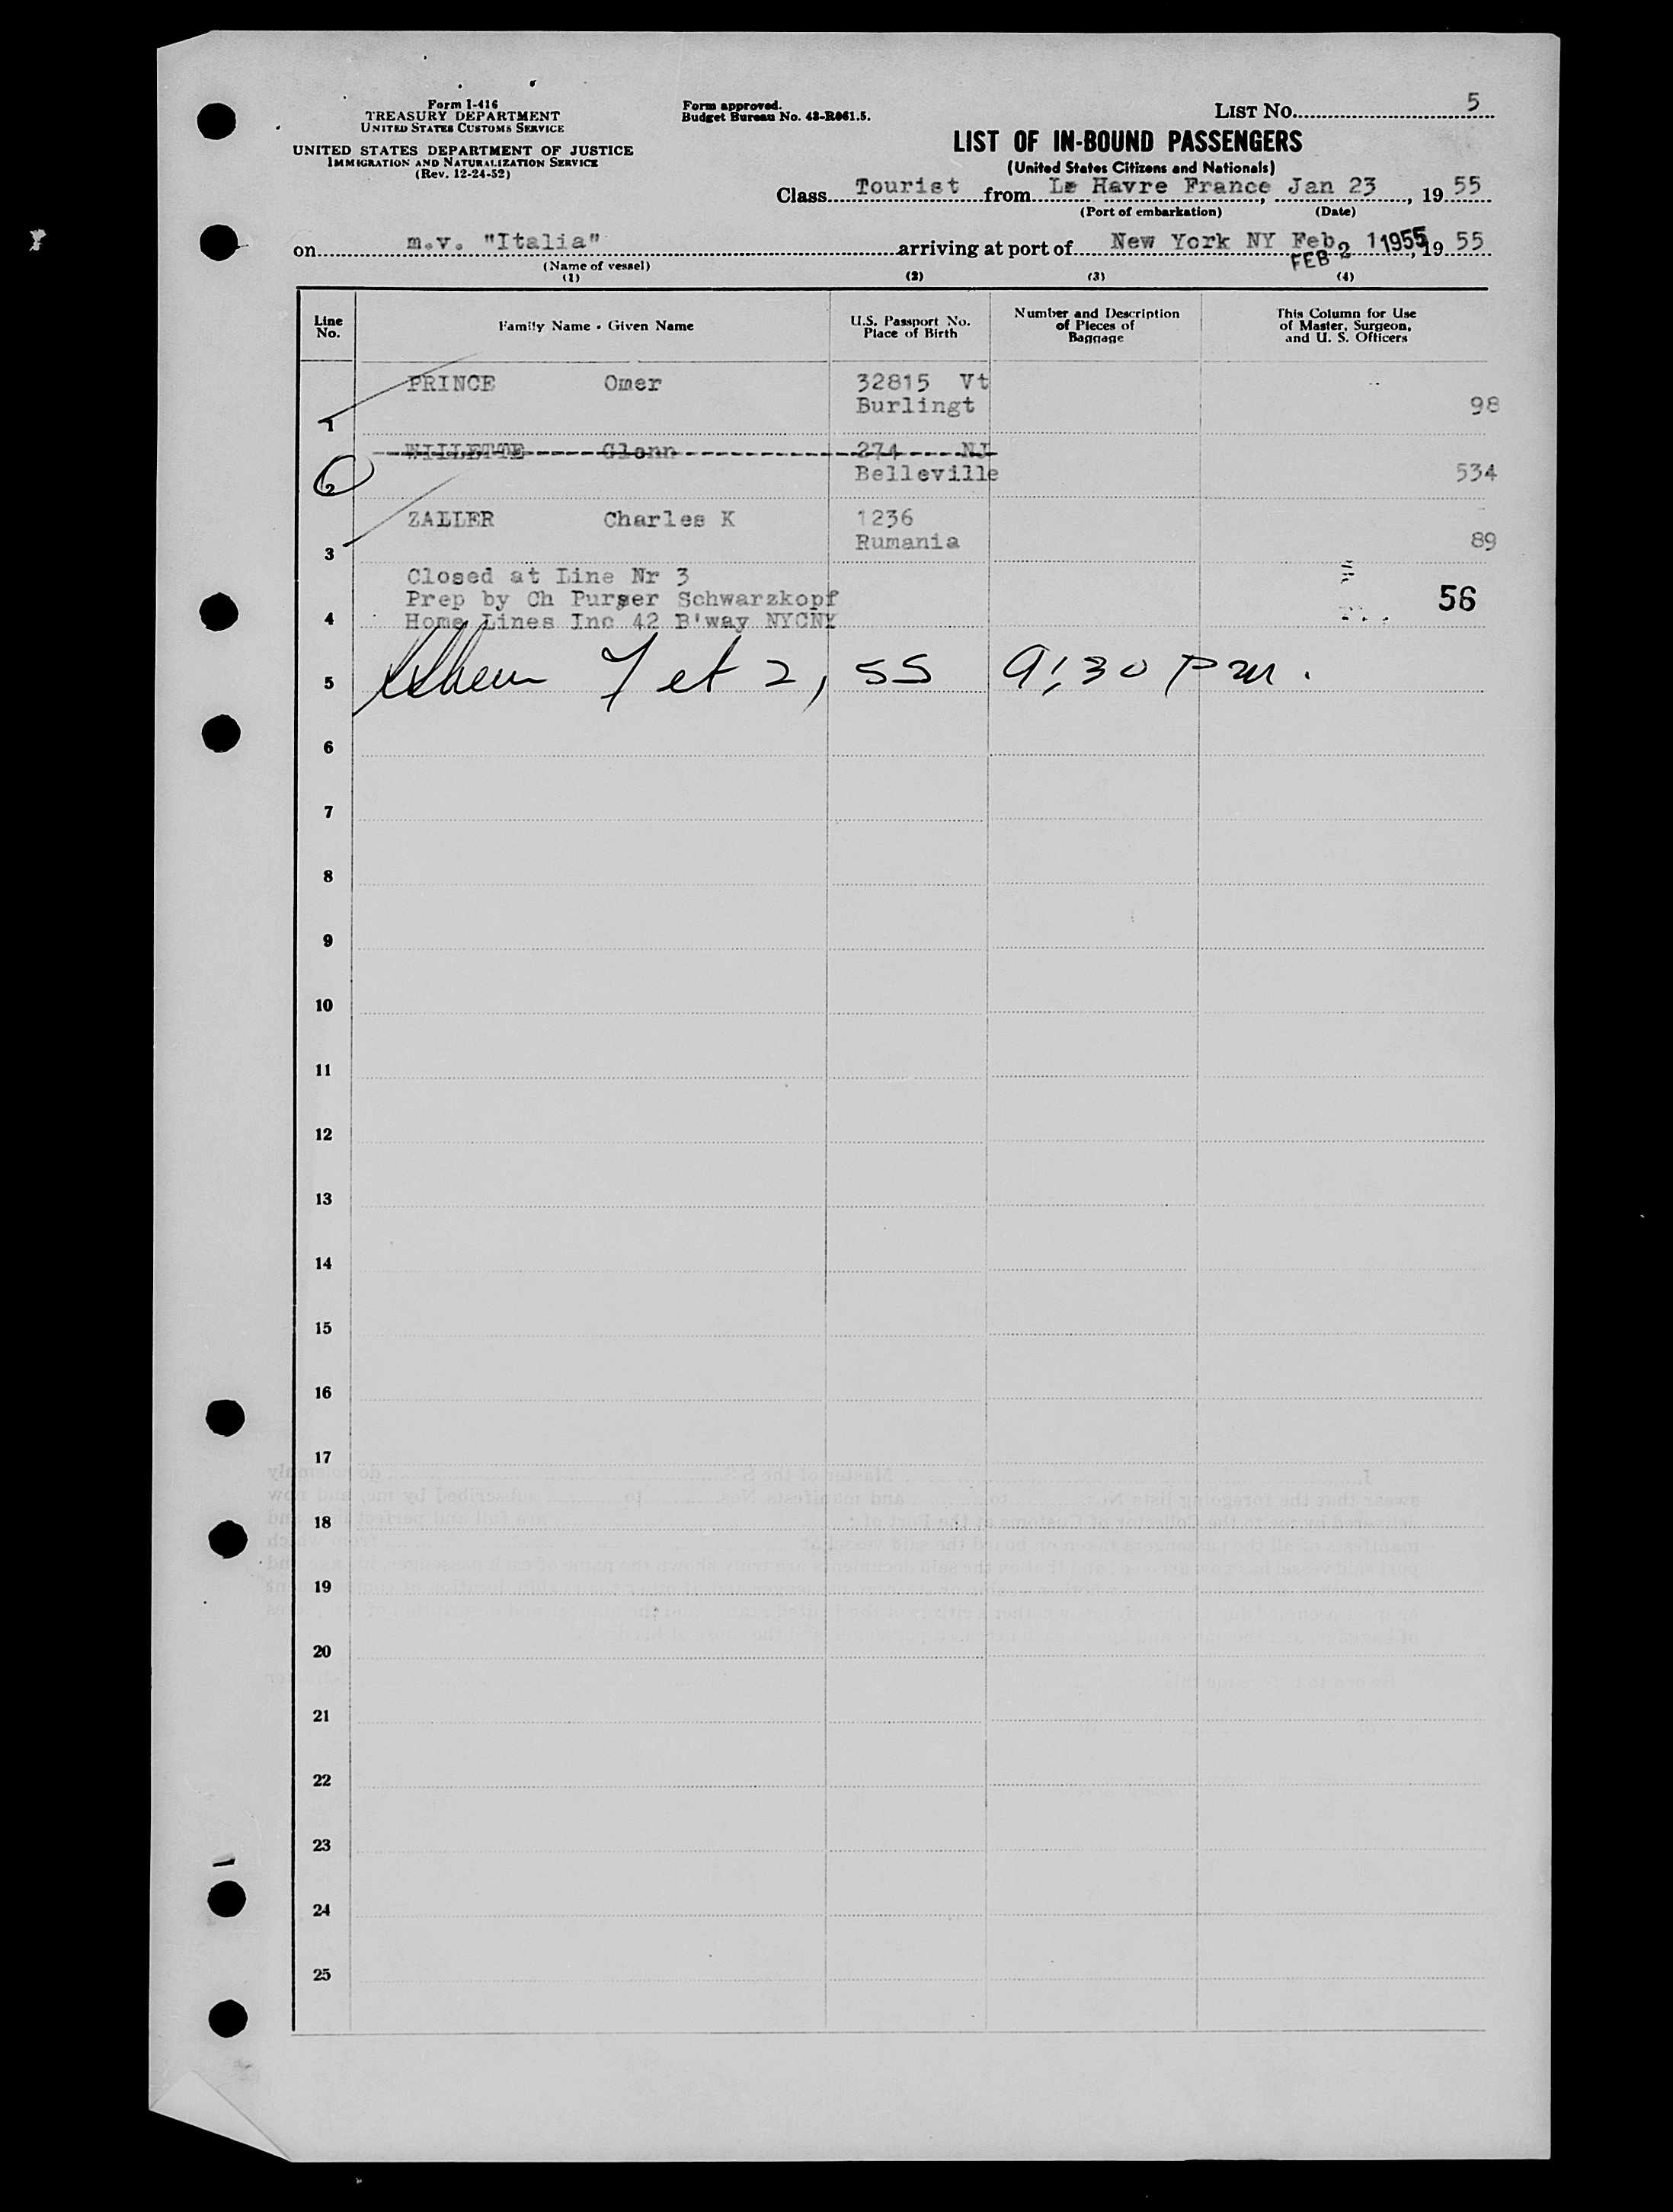 Form I-416
TREASURY DEPARTMENT
UNITED STATES CUSTOMS SERVICE
UNITED STATES DEPARTMENT OF JUSTICE
IMMIGRATION AND NATURALIZATION SERVICE
(Rev. 12-24-52)
Form approved.
Budget Bureau No. 43-R061.5.
LIST No. 5
LIST OF IN-BOUND PASSENGERS
(United States Citizens and Nationals)
Class Tourist from Le Havre France, Jan 23, 19 55
(Port of embarkation) (Date)
on m.v. "Italia" arriving at port of New York NY Feb 1, 19 55
FEB 2 1955
(Name of vessel)
(1) (2) (3) (4)
Line No. Family Name - Given Name U.S. Passport No. Place of Birth Number and Description of Pieces of Baggage This Column for Use of Master, Surgeon, and U. S. Officers
PRINCE Omer 32815 Vt
1 Burlingt 98
WILLETTE Glenn 274 NJ
2 Belleville 534
ZALLER Charles K 1236
3 Rumania 89
Closed at Line Nr 3
Prep by Ch Purser Schwarzkopf 56
4 Home Lines Inc 42 B'way NYCNY
5 2, 55 9:30 Pm.
6
7
8
9
10
11
12
13
14
15
16
17
18
19
20
21
22
23
24
25